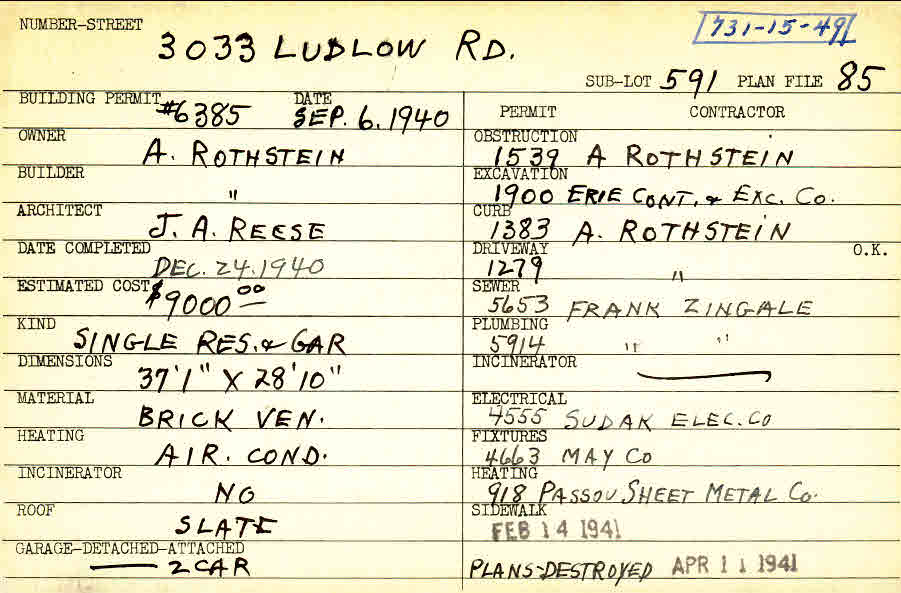 NUMBER-STREET
3033 LUDLOW RD.
731-15-49
SUB-LOT 591 PLAN FILE 85
BUILDING PERMIT #6385 DATE SEP. 6. 1940
OWNER A. ROTHSTEIN
BUILDER "
ARCHITECT J. A. REESE
DATE COMPLETED DEC. 24. 1940
ESTIMATED COST $9000 00
KIND SINGLE RES. & GAR
DIMENSIONS 37'1" X 28'10"
MATERIAL BRICK VEN.
HEATING AIR. COND.
INCINERATOR NO
ROOF SLATE
GARAGE-DETACHED-ATTACHED
2 CAR
PERMIT CONTRACTOR
OBSTRUCTION 1539 A ROTHSTEIN
EXCAVATION 1900 ERIE CONT. & EXC. CO.
CURB 1383 A. ROTHSTEIN
DRIVEWAY 1279 " O.K.
SEWER 5653 FRANK ZINGALE
PLUMBING 5914 " "
INCINERATOR
ELECTRICAL 4555 SUDAK ELEC. CO
FIXTURES 4663 MAY CO
HEATING 918 PASSOV SHEET METAL CO.
SIDEWALK FEB 14 1941
PLANS-DESTROYED APR 11 1941